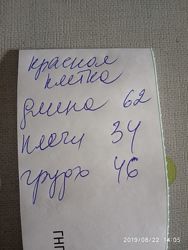 красная
клетка
длина 62
плечи 34
грудь 46
ГНГ
2019/08/22 14:05